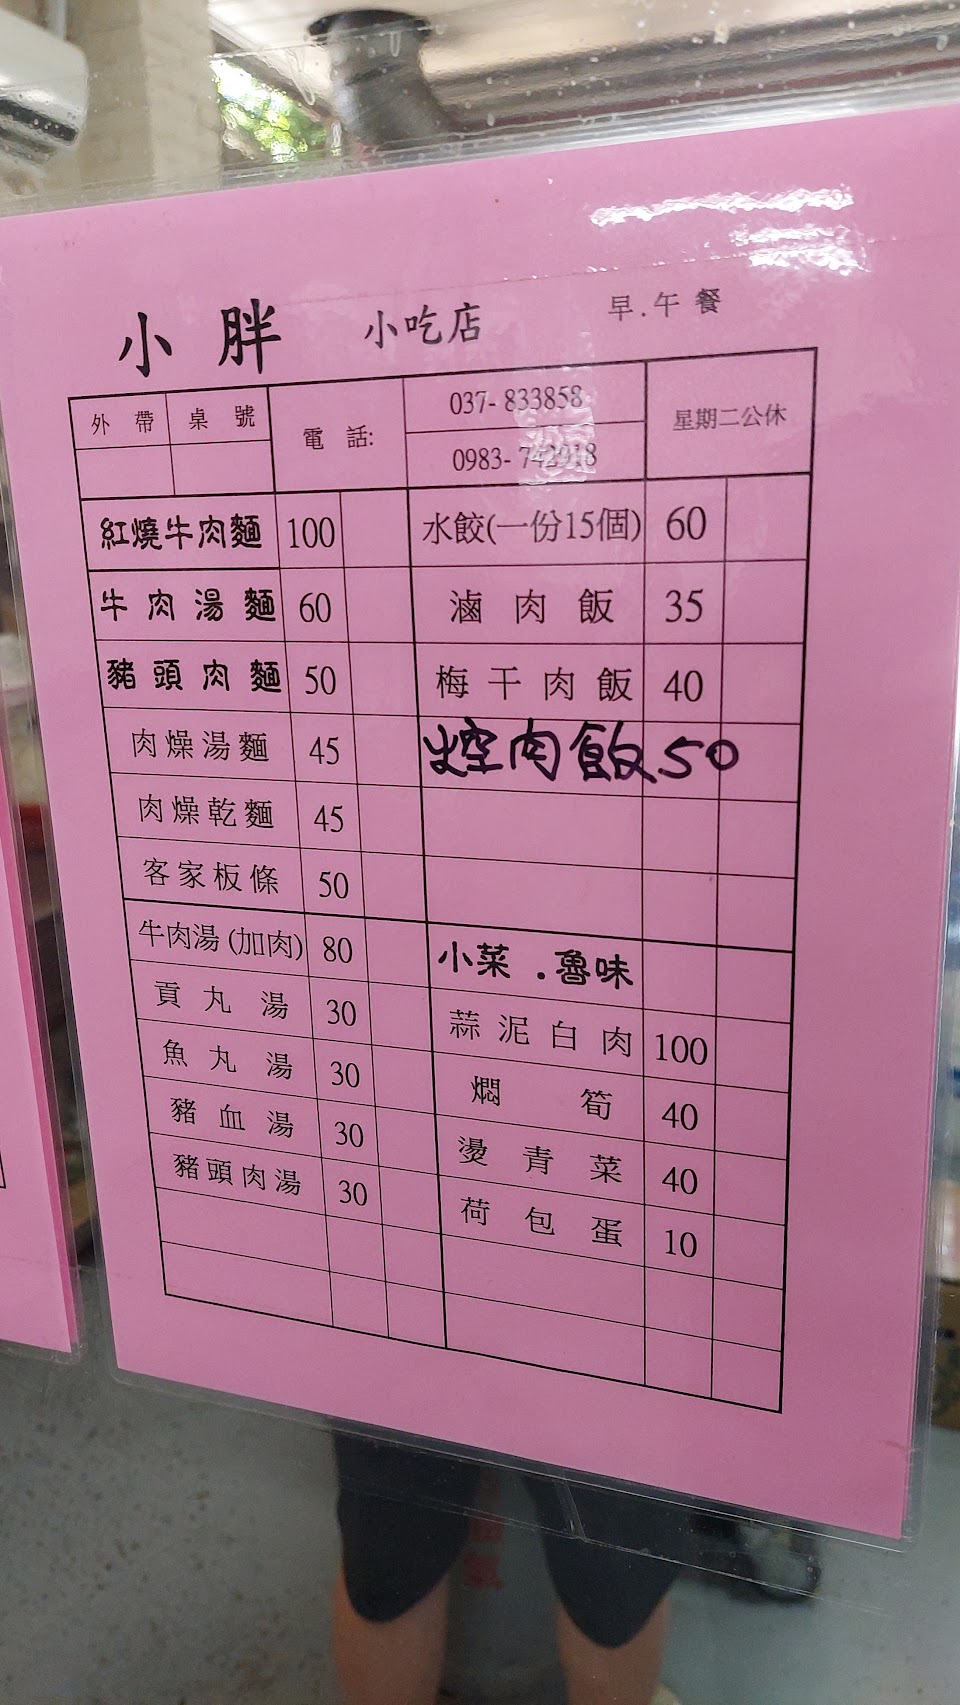 小胖 小吃店 早.午餐
外帶 桌號 電話: 037-833858 星期二公休
0983-742918
紅燒牛肉麵 100 水餃(一份15個) 60
牛肉湯麵 60 滷肉飯 35
豬頭肉麵 50 梅干肉飯 40
肉燥湯麵 45 焢肉飯 50
肉燥乾麵 45
客家板條 50
牛肉湯(加肉) 80 小菜.魯味
貢丸湯 30 蒜泥白肉 100
魚丸湯 30 燜筍 40
豬血湯 30 燙青菜 40
豬頭肉湯 30 荷包蛋 10